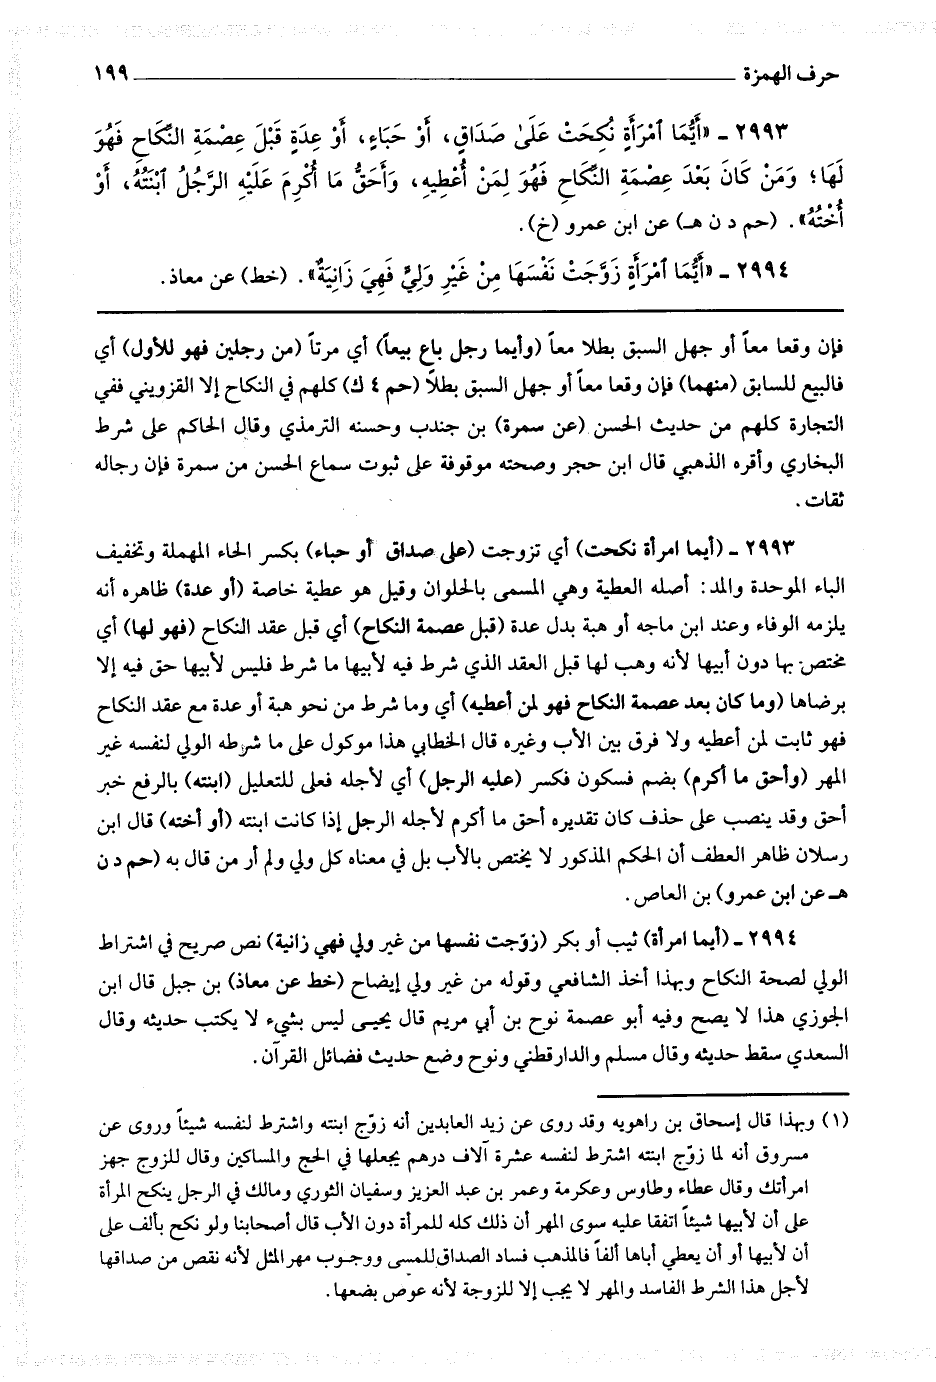 حرف الهمزة ١٩٩
٢٩٩٣ ـ «أَيُّمَا ٱمْرَأَةٍ نُكِحَتْ عَلَىٰ صَدَاقٍ، أَوْ حَبَاءٍ، أَوْ عِدَةٍ قَبْلَ عِصْمَةِ النِّكَاحِ فَهُوَ
لَهَا؛ وَمَنْ كَانَ بَعْدَ عِصْمَةِ النِّكَاحِ فَهُوَ لِمَنْ أُعْطِيهِ، وَأَحَقُّ مَا أُكْرِمَ عَلَيْهِ الرَّجُلُ ٱبْنَتُهُ، أَوْ
أُخْتُهُ». (حم د ن هـ) عن ابن عمرو (خ).
٢٩٩٤ ـ «أَيُّمَا ٱمْرَأَةٍ زَوَّجَتْ نَفْسَهَا مِنْ غَيْرِ وَلِيٍّ فَهِيَ زَانِيَةٌ». (خط) عن معاذ.
فإن وقعا معاً أو جهل السبق بطلا معاً (وأيما رجل باع بيعاً) أي مرتاً (من رجلين فهو للأول) أي
فالبيع للسابق (منهما) فإن وقعا معاً أو جهل السبق بطلاً (حم ٤ ك) كلهم في النكاح إلا القزويني ففي
التجارة كلهم من حديث الحسن (عن سمرة) بن جندب وحسنه الترمذي وقال الحاكم على شرط
البخاري وأقره الذهبي قال ابن حجر وصحته موقوفة على ثبوت سماع الحسن من سمرة فإن رجاله
ثقات.
٢٩٩٣ ـ (أيما امرأة نكحت) أي تزوجت (على صداق أو حباء) بكسر الحاء المهملة وتخفيف
الباء الموحدة والمد: أصله العطية وهي المسمى بالحلوان وقيل هو عطية خاصة (أو عدة) ظاهره أنه
يلزمه الوفاء وعند ابن ماجه أو هبة بدل عدة (قبل عصمة النكاح) أي قبل عقد النكاح (فهو لها) أي
مختص بها دون أبيها لأنه وهب لها قبل العقد الذي شرط فيه لأبيها ما شرط فليس لأبيها حق فيه إلا
برضاها (وما كان بعد عصمة النكاح فهو لمن أعطيه) أي وما شرط من نحو هبة أو عدة مع عقد النكاح
فهو ثابت لمن أعطيه ولا فرق بين الأب وغيره قال الخطابي هذا موكول على ما شرطه الولي لنفسه غير
المهر (وأحق ما أكرم) بضم فسكون فكسر (عليه الرجل) أي لأجله فعلى للتعليل (ابنته) بالرفع خبر
أحق وقد ينصب على حذف كان تقديره أحق ما أكرم لأجله الرجل إذا كانت ابنته (أو أخته) قال ابن
رسلان ظاهر العطف أن الحكم المذكور لا يختص بالأب بل في معناه كل ولي ولم أر من قال به (حم د ن
هـ عن ابن عمرو) بن العاص.
٢٩٩٤ ـ (أيما امرأة) ثيب أو بكر (زوّجت نفسها من غير ولي فهي زانية) نص صريح في اشتراط
الولي لصحة النكاح وبهذا أخذ الشافعي وقوله من غير ولي إيضاح (خط عن معاذ) بن جبل قال ابن
الجوزي هذا لا يصح وفيه أبو عصمة نوح بن أبي مريم قال يحيى ليس بشيء لا يكتب حديثه وقال
السعدي سقط حديثه وقال مسلم والدارقطني ونوح وضع حديث فضائل القرآن.
(١) وبهذا قال إسحاق بن راهويه وقد روى عن زيد العابدين أنه زوّج ابنته واشترط لنفسه شيئاً وروى عن
مسروق أنه لما زوّج ابنته اشترط لنفسه عشرة آلاف درهم يجعلها في الحج والمساكين وقال للزوج جهز
امرأتك وقال عطاء وطاوس وعكرمة وعمر بن عبد العزيز وسفيان الثوري ومالك في الرجل ينكح المرأة
على أن لأبيها شيئاً اتفقا عليه سوى المهر أن ذلك كله للمرأة دون الأب قال أصحابنا ولو نكح بألف على
أن لأبيها أو أن يعطي أباها ألفاً فالمذهب فساد الصداق للمسى ووجوب مهر المثل لأنه نقص من صداقها
لأجل هذا الشرط الفاسد والمهر لا يجب إلا للزوجة لأنه عوص بضعها.